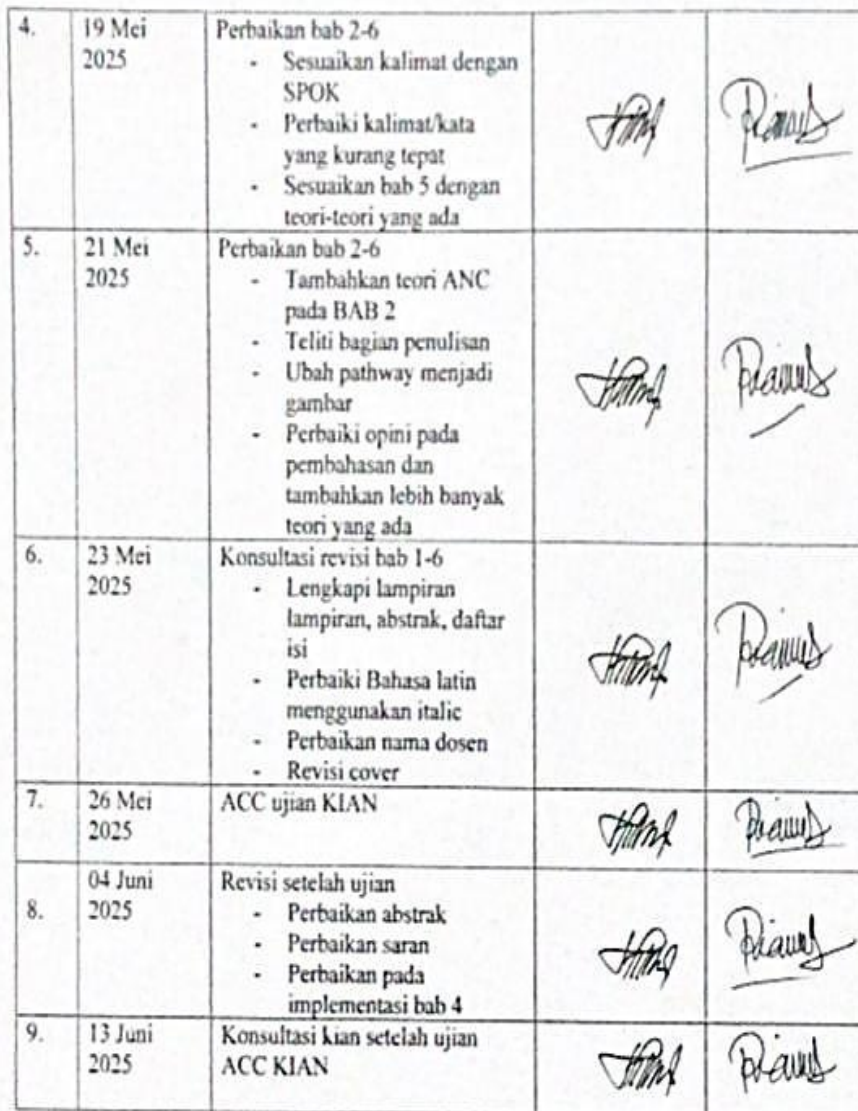 4. 19 Mei Perbaikan bab 2-6
2025 - Sesuaikan kalimat dengan
SPOK
- Perbaiki kalimat/kata
yang kurang tepat
- Sesuaikan bab 5 dengan
teori-teori yang ada
5. 21 Mei Perbaikan bab 2-6
2025 - Tambahkan teori ANC
pada BAB 2
- Teliti bagian penulisan
- Ubah pathway menjadi
gambar
- Perbaiki opini pada
pembahasan dan
tambahkan lebih banyak
teori yang ada
6. 23 Mei Konsultasi revisi bab 1-6
2025 - Lengkapi lampiran
lampiran, abstrak, daftar
isi
- Perbaiki Bahasa latin
menggunakan italic
- Perbaikan nama dosen
- Revisi cover
7. 26 Mei ACC ujian KIAN
2025
04 Juni Revisi setelah ujian
8. 2025 - Perbaikan abstrak
- Perbaikan saran
- Perbaikan pada
implementasi bab 4
9. 13 Juni Konsultasi kian setelah ujian
2025 ACC KIAN